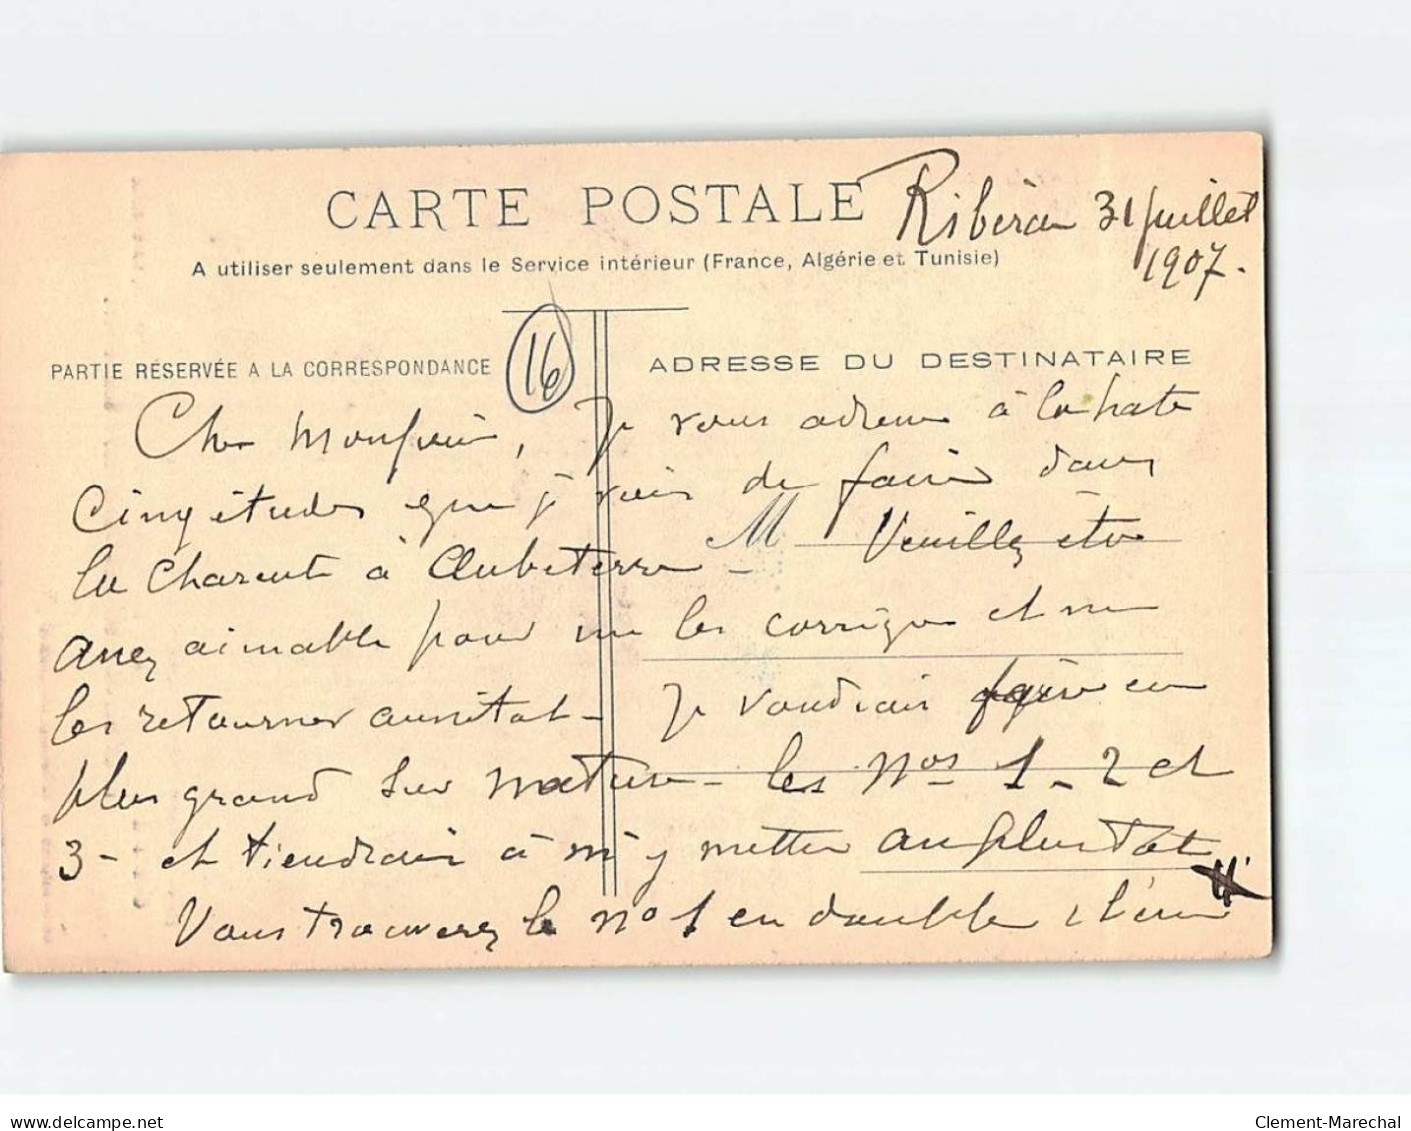 CARTE POSTALE
Ribérac 31 juillet
1907.
A utiliser seulement dans le Service intérieur (France, Algérie et Tunisie)
16
PARTIE RÉSERVÉE A LA CORRESPONDANCE
ADRESSE DU DESTINATAIRE
Cher Monsieur, Je vous adresse à la hate
cinq études que je viens de faire dans
la Charente à Aubeterre - Veuillez être
M
assez aimable pour me les corriger et me
les retourner aussitot - Je voudrais faire en
plus grand sur nature - les Nos 1 - 2 et
3 - et tiendrais à m'y mettre au plus tot
Vous trouverez le no 1 en double
www.delcampe.net
Clement-Marechal